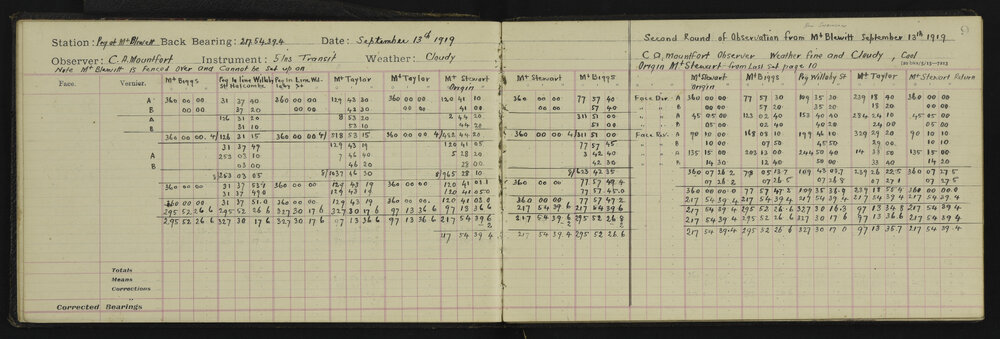 Station: Peg at Mt Blewitt Back Bearing: 217.54.39.4 Date: September 13th 1919
Observer: C.A. Mountfort Instrument: 5 ins Transit Weather: Cloudy
Note Mt Blewitt is Fenced Over and Cannot be set up on
Face. Vernier. Mt Biggs Mt Taylor Mt Taylor Mt Stewart Origin
A 360 00 00 31 37 40 360 00 00 129 43 30 360 00 00 120 41 10
B 00 00 37 20 00 00 43 30 00 00 41 00
A 126 31 20 8 53 20 2 44 20
B 31 10 53 10 44 20
360 00 00.4/ 126 31 15 360 00 00 4/ 518 53 15 360 00 00.4/ 482 44 20
31 37 49 129 43 19 120 41 05
A 253 03 10 7 46 40 5 28 20
B 03 00 46 20 28 00
8/253 03 05 8/1037 46 30 8/965 28 10
360 00 00 360 00 00 129 43 19 360 00 00
360 00 00 31 37 51.0 360 00 00 129 43 19 360 00 00 120 41 03.0
295 52 26 6 295 52 26 6 327 30 17 6 327 30 17 6 97 13 36 6 97 13 36 6
295 52 26 6 327 30 17 6 327 30 17 6 97 13 36 6 97 13 36 6 217 54 39 6
217 54 39.4
Totals
Means
Corrections
Corrected Bearings
Mt Stewart Mt Biggs
360 00 00 77 57 40
00 00 57 40
311 51 00
51 00
360 00 00 4/ 311 51 00
77 57 45
3 42 40
42 30
8/623 42 35
360 00 00 77 57 49.4
77 57 45.0
360 00 00 77 57 47.2
217 54 39 6 217 54 39.6
217 54 39.6 295 52 26.8
217 54 39.4 295 52 26.6
Second Round of Observation from Mt Blewitt September 13th 1919
C A. Mountfort Observer Weather Fine and Cloudy, Cool
Origin Mt Stewart from Last Set page 10
Mt Stewart Origin Mt Biggs Peg Willoby St Mt Taylor Mt Stewart Return
Face Dir. A 360 00 00 77 57 30 109 35 30 239 18 40 360 00 00
B 00 00 57 20 35 20 18 20 00 00
A 45 05 00 123 02 40 153 40 40 284 24 10 45 05 00
B 05 00 02 40 40 20 24 00 05 00
Face Rev. A 90 10 00 168 08 10 199 46 10 329 29 20 90 10 10
B 10 00 07 50 45 50 29 00 10 10
A 135 15 00 203 13 00 244 50 40 14 33 50 135 15 00
B 14 30 12 40 50 00 33 40 14 20
360 07 26 2 78 05 13.7 109 43 03.7 239 26 22.5 360 07 27.5
07 26 2 07 26 5 07 26 8 07 27 1 07 27.5
360 00 00 0 77 57 47 2 109 35 36.9 239 18 55.4 360 00 00.0
217 54 39.4 217 54 39 4 217 54 39.4 217 54 39 4 217 54 39 4
217 54 39.4 295 52 26 6 327 30 16.3 97 13 34 8 217 54 39 4
217 54 39.4 295 52 26 6 327 30 17 6 97 13 36.6 217 54 39 4
217 54 39.4 295 52 26 6 327 30 17 0 97 13 35.7 217 54 39.4